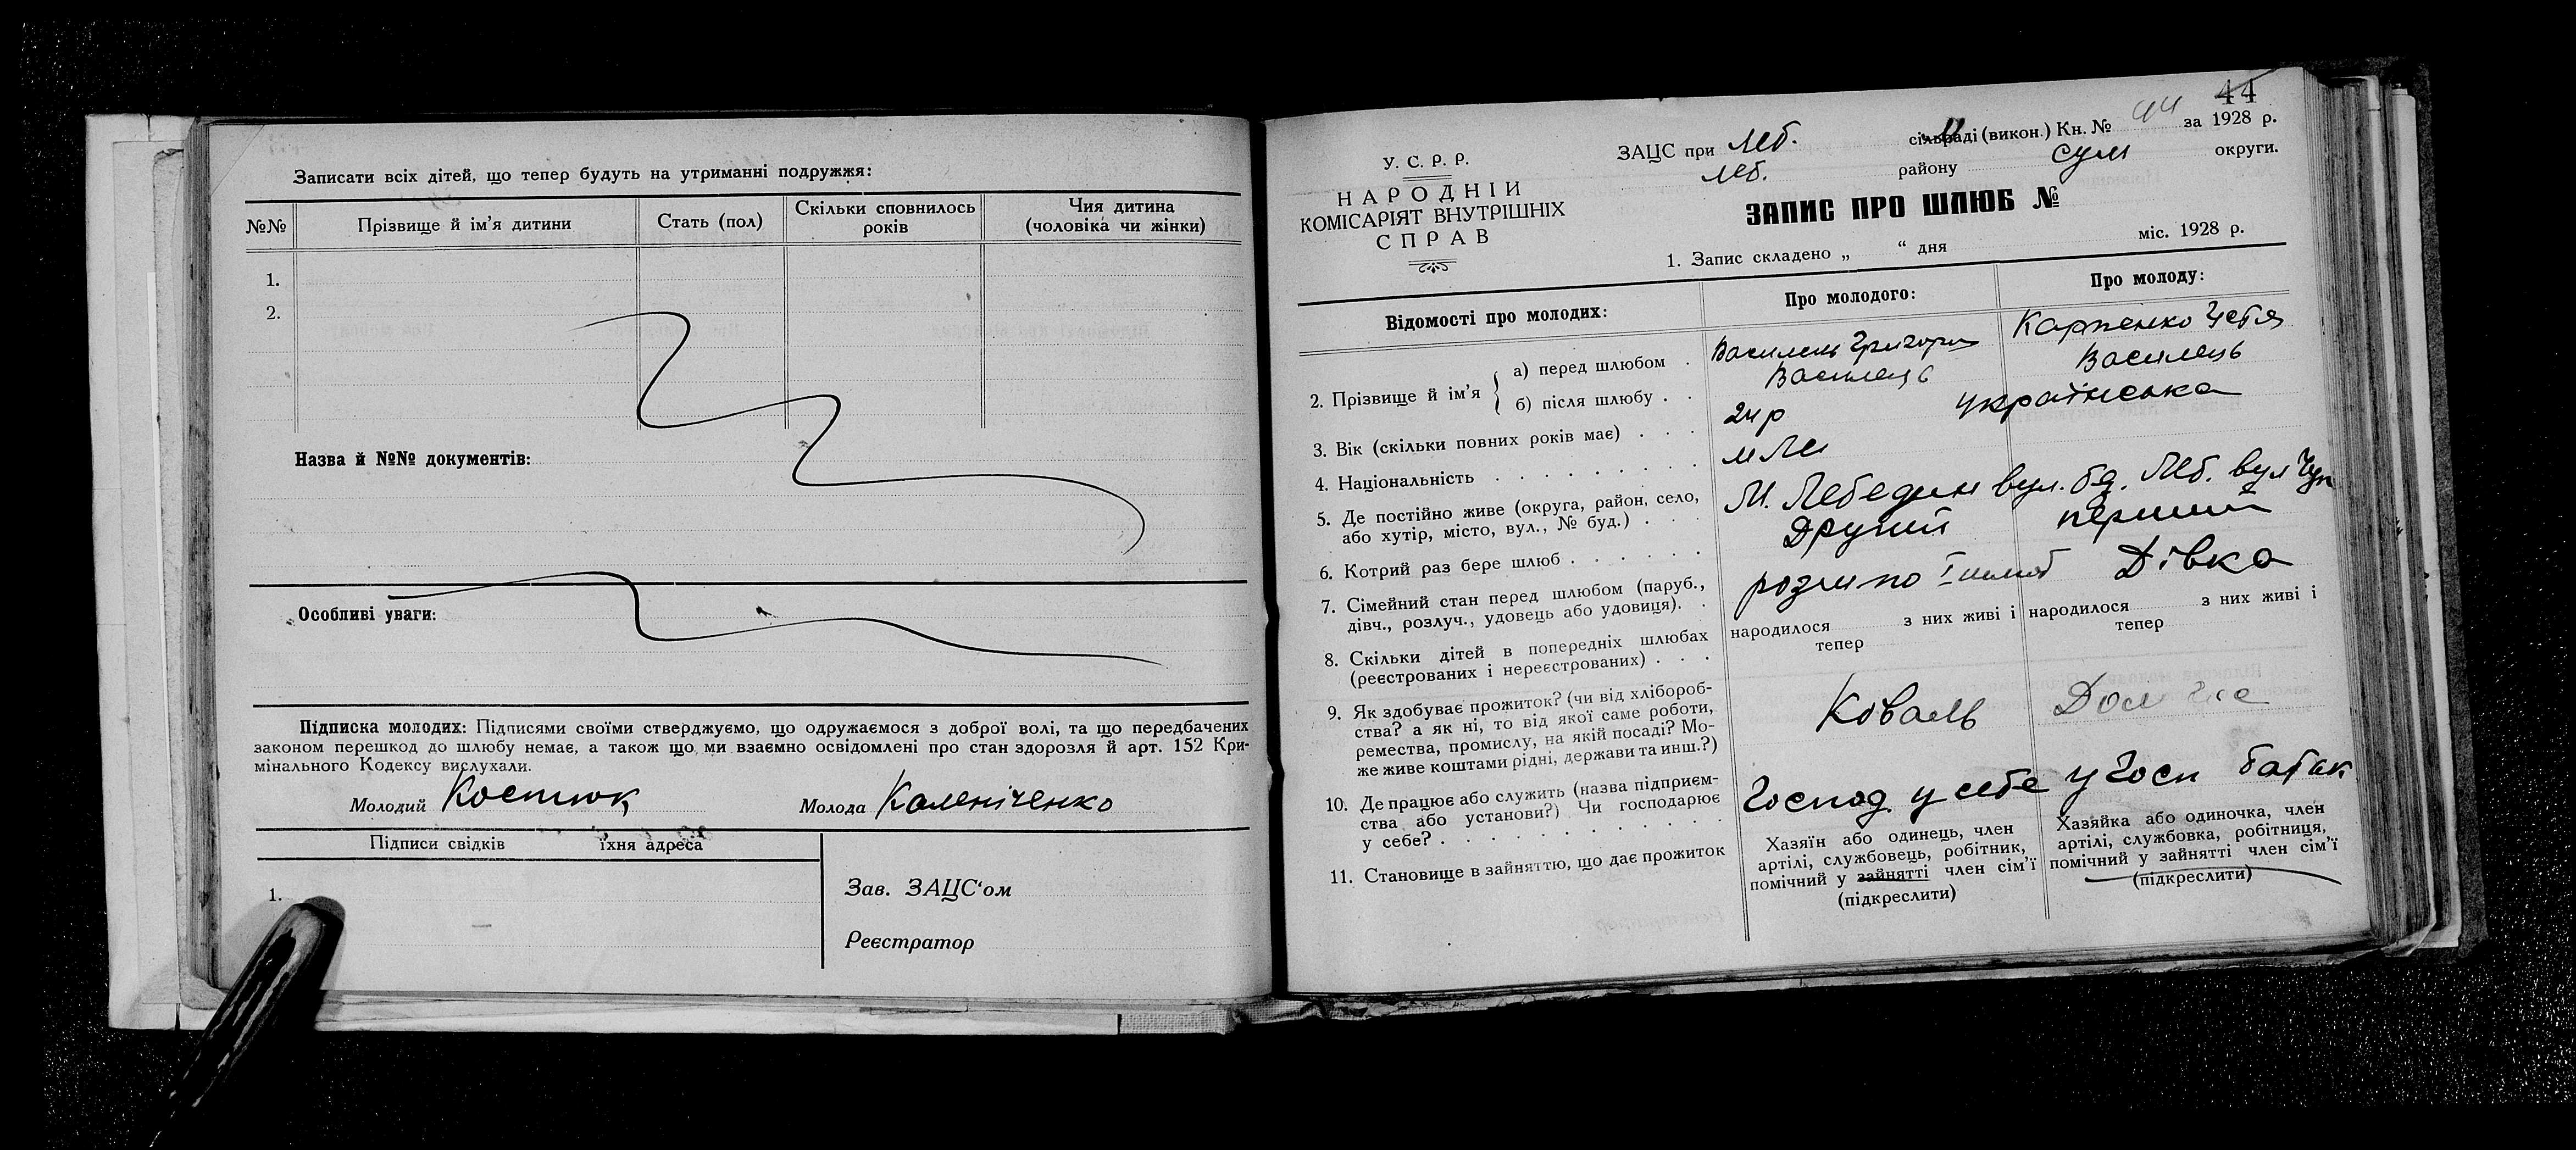 Записати всіх дітей, що тепер будуть на утриманні подружжя:
№№ Прізвище й ім'я дитини Стать (пол) Скільки сповнилось років Чия дитина (чоловіка чи жінки)
1.
2.
Назва й №№ документів:
Особливі уваги:
Підписка молодих: Підписями своїми стверджуємо, що одружаємося з доброї волі, та що передбачених
законом перешкод до шлюбу немає, а також що ми взаємно освідомлені про стан здоровля й арт. 152 Кри-
мінального Кодексу вислухали.
Молодий Костюк Молода Каленіченко
Підписи свідків їхня адреса
1.
Зав. ЗАЦС'ом
Реєстратор
44
У. С. Р. Р.
НАРОДНІЙ
КОМІСАРІЯТ ВНУТРІШНІХ
СПРАВ
ЗАЦС при Леб. сільраді (викон.) Кн. № 44 за 1928 р.
Леб. району Сум округи.
ЗАПИС ПРО ШЛЮБ №
1. Запис складено „ “ дня міс. 1928 р.
Відомості про молодих: Про молодого: Про молоду:
2. Прізвище й ім'я { а) перед шлюбом . Василець Григорій Карпенко
б) після шлюбу . . Василець Василець
3. Вік (скільки повних років має) . . . 24 р українська
4. Національність . . . . . . . . .
5. Де постійно живе (округа, район, село,
або хутір, місто, вул., № буд.) . . . М. Лебедин вул. бд. Леб. вул
6. Котрий раз бере шлюб . . . . . . Другий перший
7. Сімейний стан перед шлюбом (паруб.,
дівч., розлуч., удовець або удовиця). . Дівка
8. Скільки дітей в попередніх шлюбах
(реєстрованих і нереєстрованих) . . .
народилося з них живі і тепер
народилося з них живі і тепер
9. Як здобуває прожиток? (чи від хлібороб-
ства? а як ні, то від якої саме роботи,
ремества, промислу, на якій посаді? Мо-
же живе коштами рідні, держави та инш.?)
Коваль
10. Де працює або служить (назва підприєм-
ства або установи?) Чи господарює
у себе? . . . . . . . . . .
Господ. у себе у Госп батьк
11. Становище в зайняттю, що дає прожиток
Хазяїн або одинець, член
артілі, службовець, робітник,
помічний у зайнятті член сім'ї
(підкреслити)
Хазяйка або одиночка, член
артілі, службовка, робітниця,
помічний у зайнятті член сім'ї
(підкреслити)